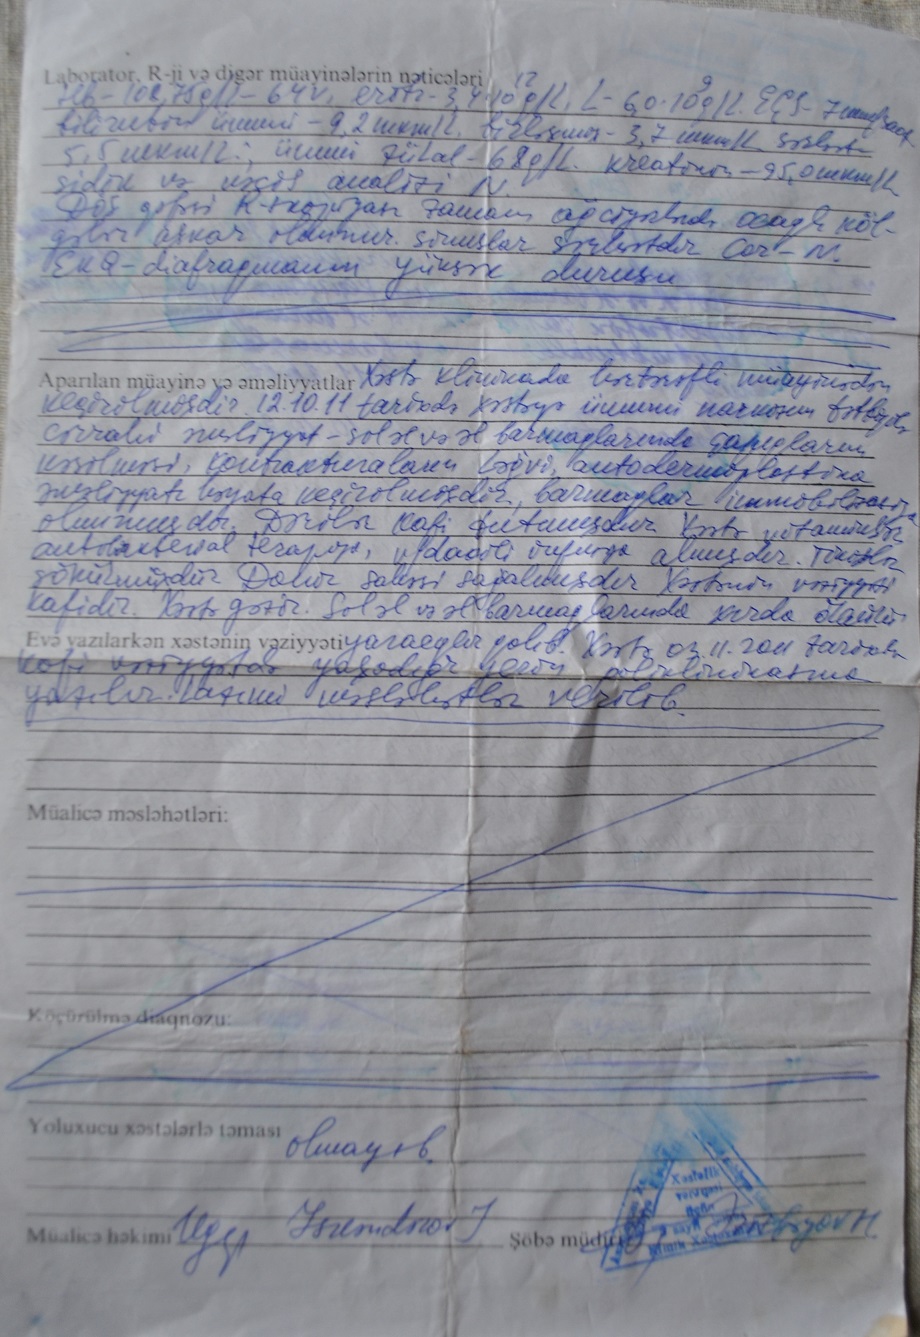 Laborator, R-ji və digər müayinələrin nəticələri
Hb- 108,75g/l - 64v, eritr- 3,4·10¹² g/l, L- 6,0·10⁹ g/l EÇS- 7
bilirubin ümumi - 9,2 mkm/l, birləşmiş- 3,7 mkm/l, sərbəst
5,5 mkm/l; ümumi zülal- 68g/l. kreatinin - 95,0 mkm/l
sidik və nəcis analizi N.
Döş qəfəsi R-skopiyası zamanı ağciyərlərdə ocaqlı köl-
gələr aşkar olunmur. Sinuslar sərbəstdir Cor- N.
EKQ- diafraqmanın yüksək duruşu
Aparılan müayinə və əməliyyatlar Xəstə klinikada hərtərəfli müayinədən
keçirilmişdir. 12.10.11 tarixdə xəstəyə ümumi narkozun tətbiqilə
cərrahi əməliyyat - sol əl və əl barmaqlarında çapıqların
kəsilməsi, kontrakturaların ləğvi, autodermoplastika
əməliyyatı həyata keçirilmişdir, barmaqlar immobilizasiya
olunmuşdur. Dərilər kafi tutmuşdur Xəstə vitaminlər
antibakterial terapiya, v/daxili infuziya almışdır. Tikişlər
sökülmüşdür Donor sahəsi sağalmışdır Xəstənin vəziyyəti
kafidir. Xəstə gəzir. Sol əl və əl barmaqlarında xırda ölçülü
Evə yazılarkən xəstənin vəziyyəti yaracıqlar qalıb. Xəstə 02.11.2011 tarixdə
kafi vəziyyətdə yaşadığı yerin poliklinikasına
yazılır. Lazımi məsləhətlər verilib.
Müalicə məsləhətləri:
Köçürülmə diaqnozu:
Yoluxucu xəstələrlə təması olmayıb.
Müalicə həkimi Şöbə müdiri
Xəstəlik
vərəqəsi
üçün
Klinik Xəstəxana